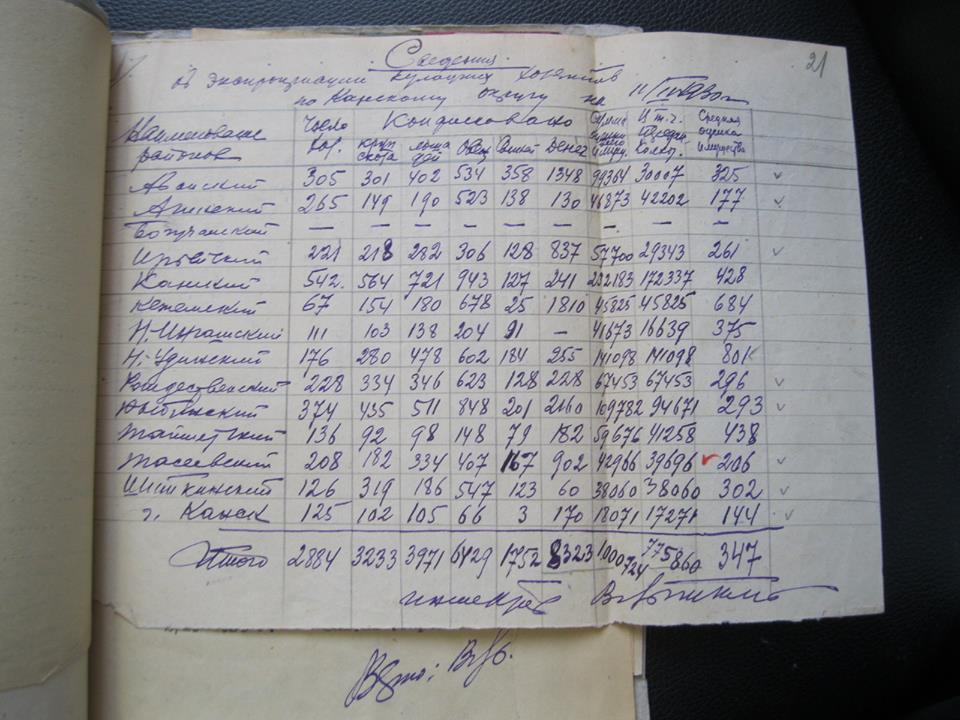 21
Сведения
об экспроприации кулацких хозяйств
по Канскому округу на 11/III-1930 г.
Наименование районов Число хоз. Конфисковано Сумма Средняя оценка имущества
круп скота лоша дей Овец Свиней Денег
Абанский 305 301 402 534 358 1348 99364 30007 325
Агинский 265 149 190 523 138 130 46873 42202 177
Богучанский — — — — — — — — —
Ирбейский 221 218 282 306 128 837 57700 29343 261
Канский 542 564 721 943 127 241 232183 172337 428
Кежемский 67 154 180 678 25 1810 45825 45825 684
Н.-Ингашский 111 103 138 204 91 — 41673 16639 375
Н.-Удинский 176 280 478 602 184 255 141098 141098 801
Рождественский 228 334 346 623 128 228 67453 67453 296
374 435 511 848 201 2160 109782 94671 293
Тайшетский 136 92 98 148 79 182 59676 41258 438
Тасеевский 208 182 334 407 167 902 42966 39696 206
Шиткинский 126 319 186 547 123 60 38060 38060 302
г. Канск 125 102 105 66 3 170 18071 17271 144
Итого 2884 3233 3971 6429 1752 8323 1000724 775860 347